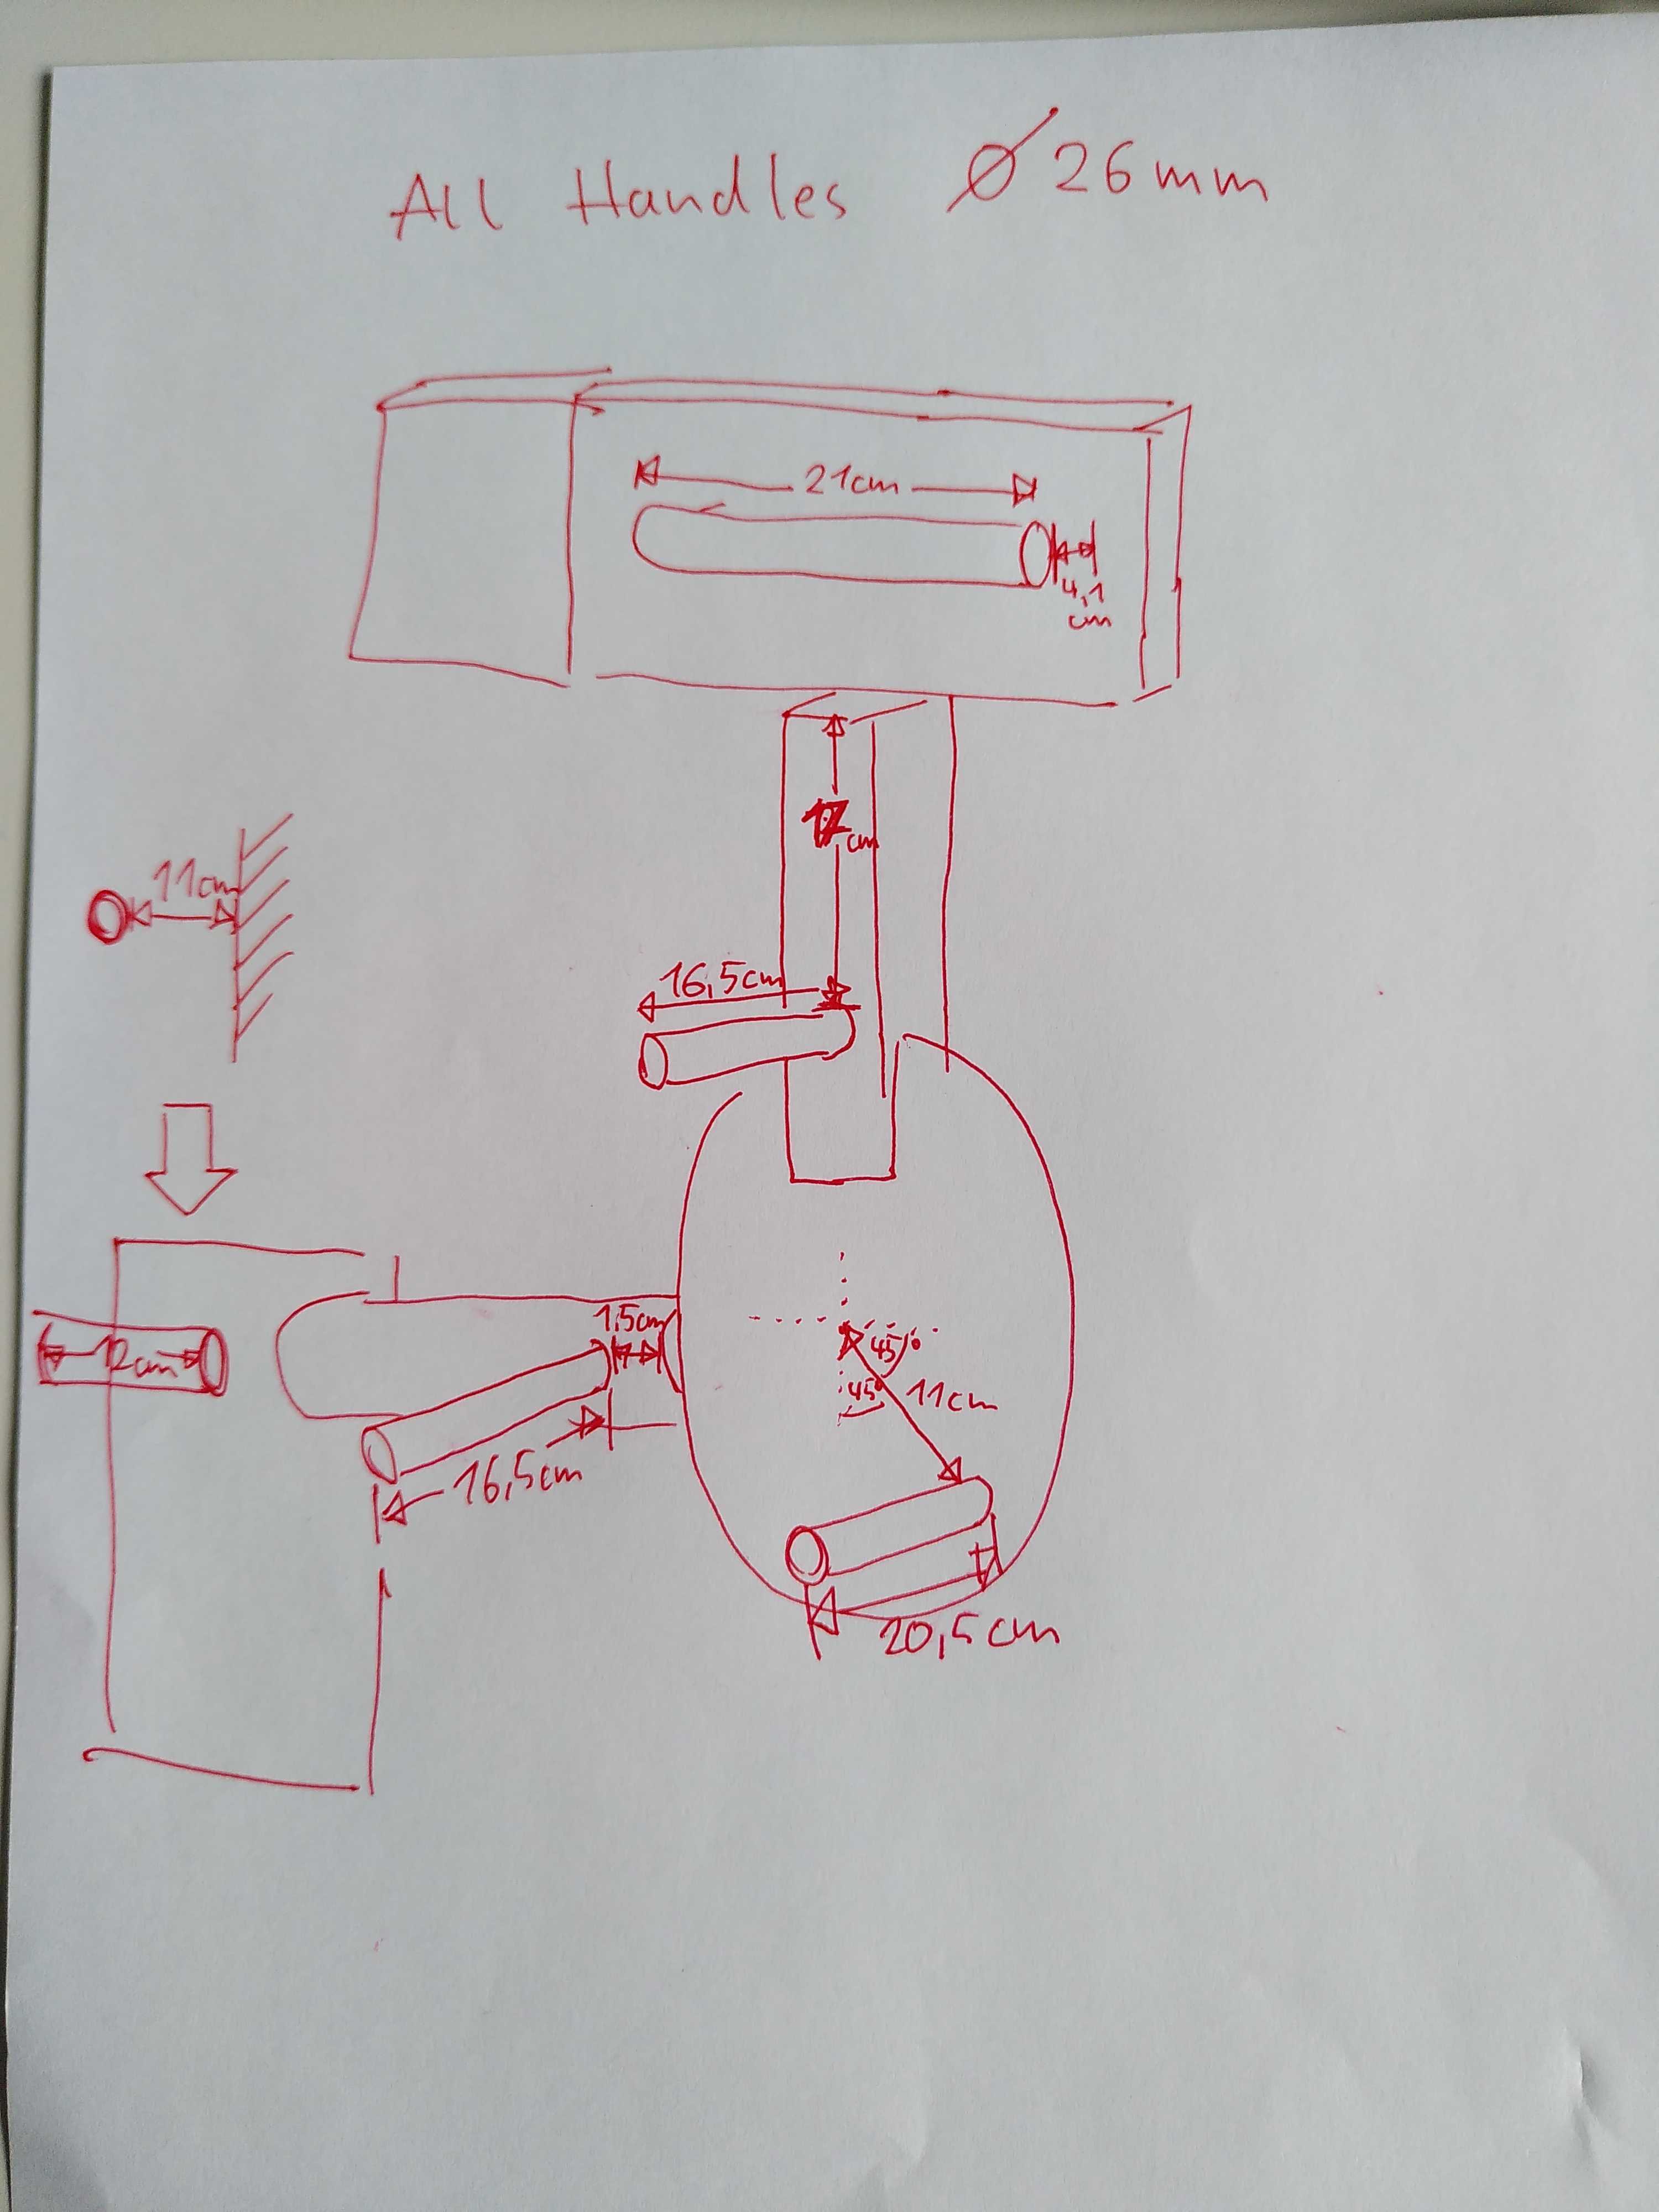 All Handles Ø 26mm
21cm
4,1
cm
cm
11cm
16,5cm
1,5cm
12cm
45°
45°
11cm
16,5cm
20,5cm